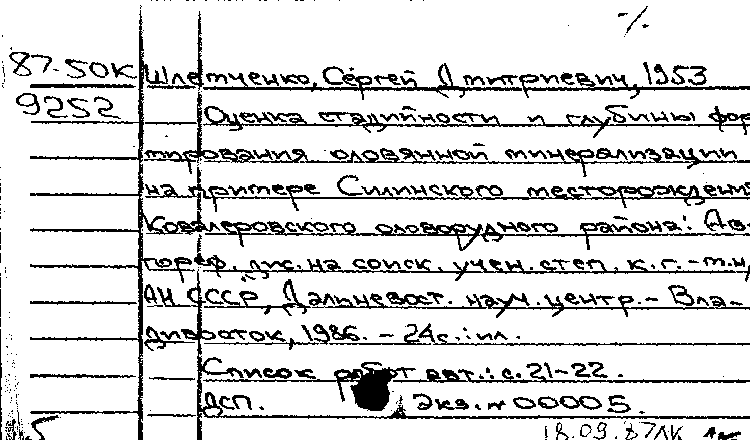 87-50К Шлемченко, Сергей Дмитриевич, 1953
9252 Оценка стадийности и глубины фор-
мирования оловянной минерализации
на примере Силинского месторождения
Ковалеровского оловорудного района: Ав-
тореф. дис. на соиск. учен. степ. к.г.-м.н,
АН СССР, Дальневост. науч. центр. - Вла-
дивосток, 1986. - 24с.: ил.
Список работ авт.: с. 21-22.
ДСП. Экз. № 00005.
18.09.87